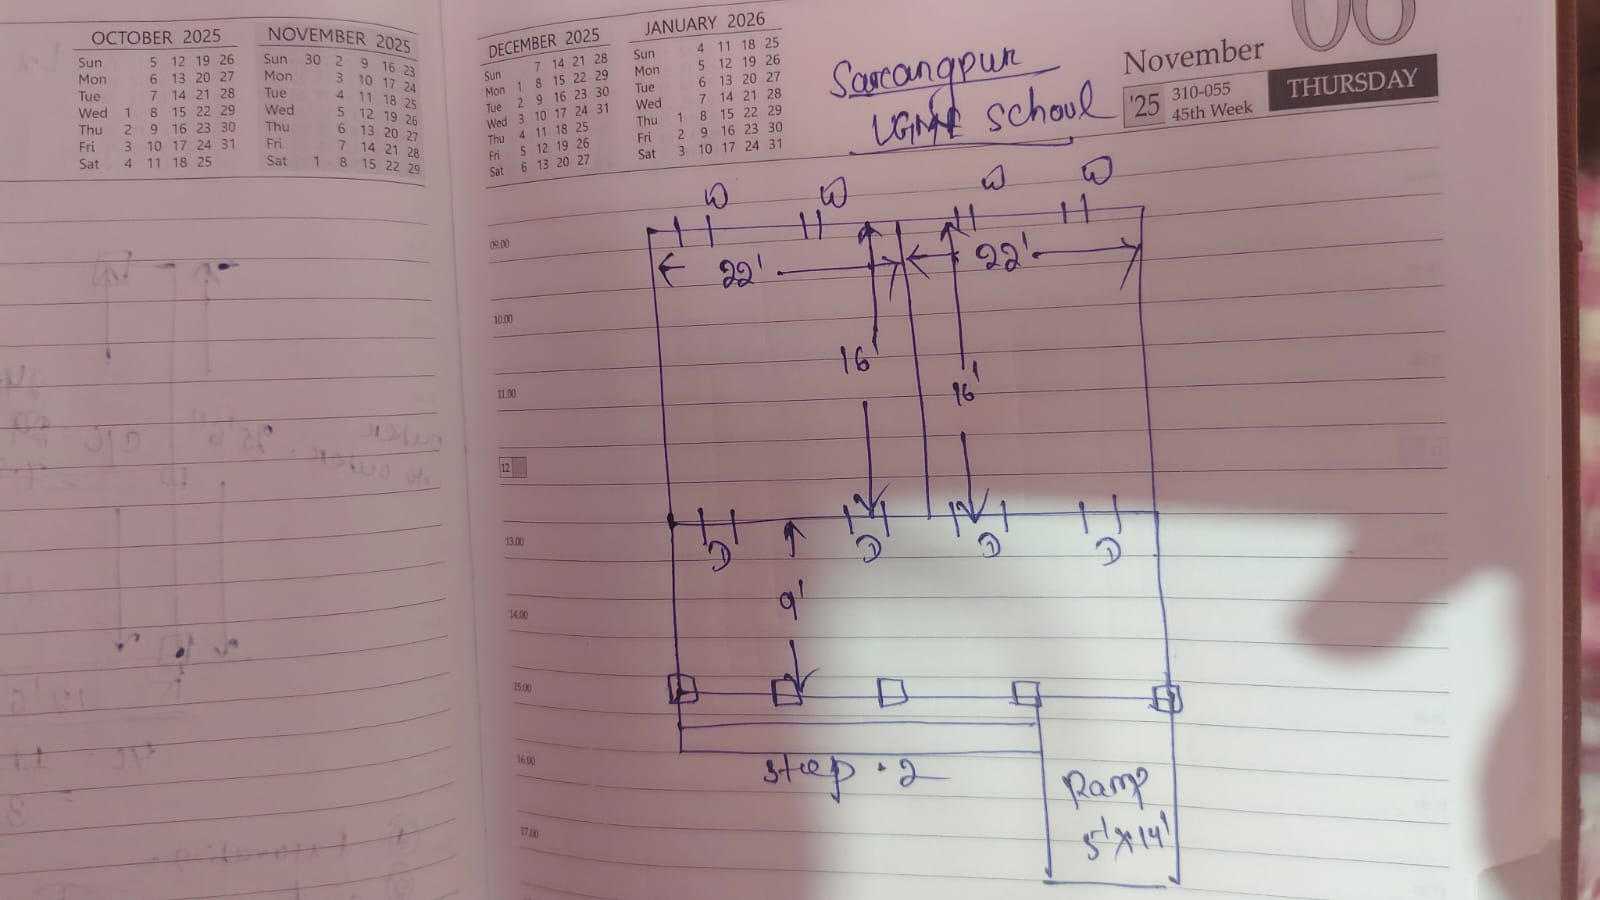 OCTOBER 2025
Sun 5 12 19 26
Mon 6 13 20 27
Tue 7 14 21 28
Wed 1 8 15 22 29
Thu 2 9 16 23 30
Fri 3 10 17 24 31
Sat 4 11 18 25
NOVEMBER 2025
Sun 30 2 9 16 23
Mon 3 10 17 24
Tue 4 11 18 25
Wed 5 12 19 26
Thu 6 13 20 27
Fri 7 14 21 28
Sat 1 8 15 22 29
DECEMBER 2025
Sun 7 14 21 28
Mon 1 8 15 22 29
Tue 2 9 16 23 30
Wed 3 10 17 24 31
Thu 4 11 18 25
Fri 5 12 19 26
Sat 6 13 20 27
JANUARY 2026
Sun 4 11 18 25
Mon 5 12 19 26
Tue 6 13 20 27
Wed 7 14 21 28
Thu 1 8 15 22 29
Fri 2 9 16 23 30
Sat 3 10 17 24 31
Sarangpur
School
November
06
'25 310-055
45th Week
THURSDAY
W W W W
09.00
22' 22'
10.00
16'
11.00
16'
12
13.00
D D D D
9'
14.00
15.00
16.00
Step - 2
Ramp
5' x 14'
17.00